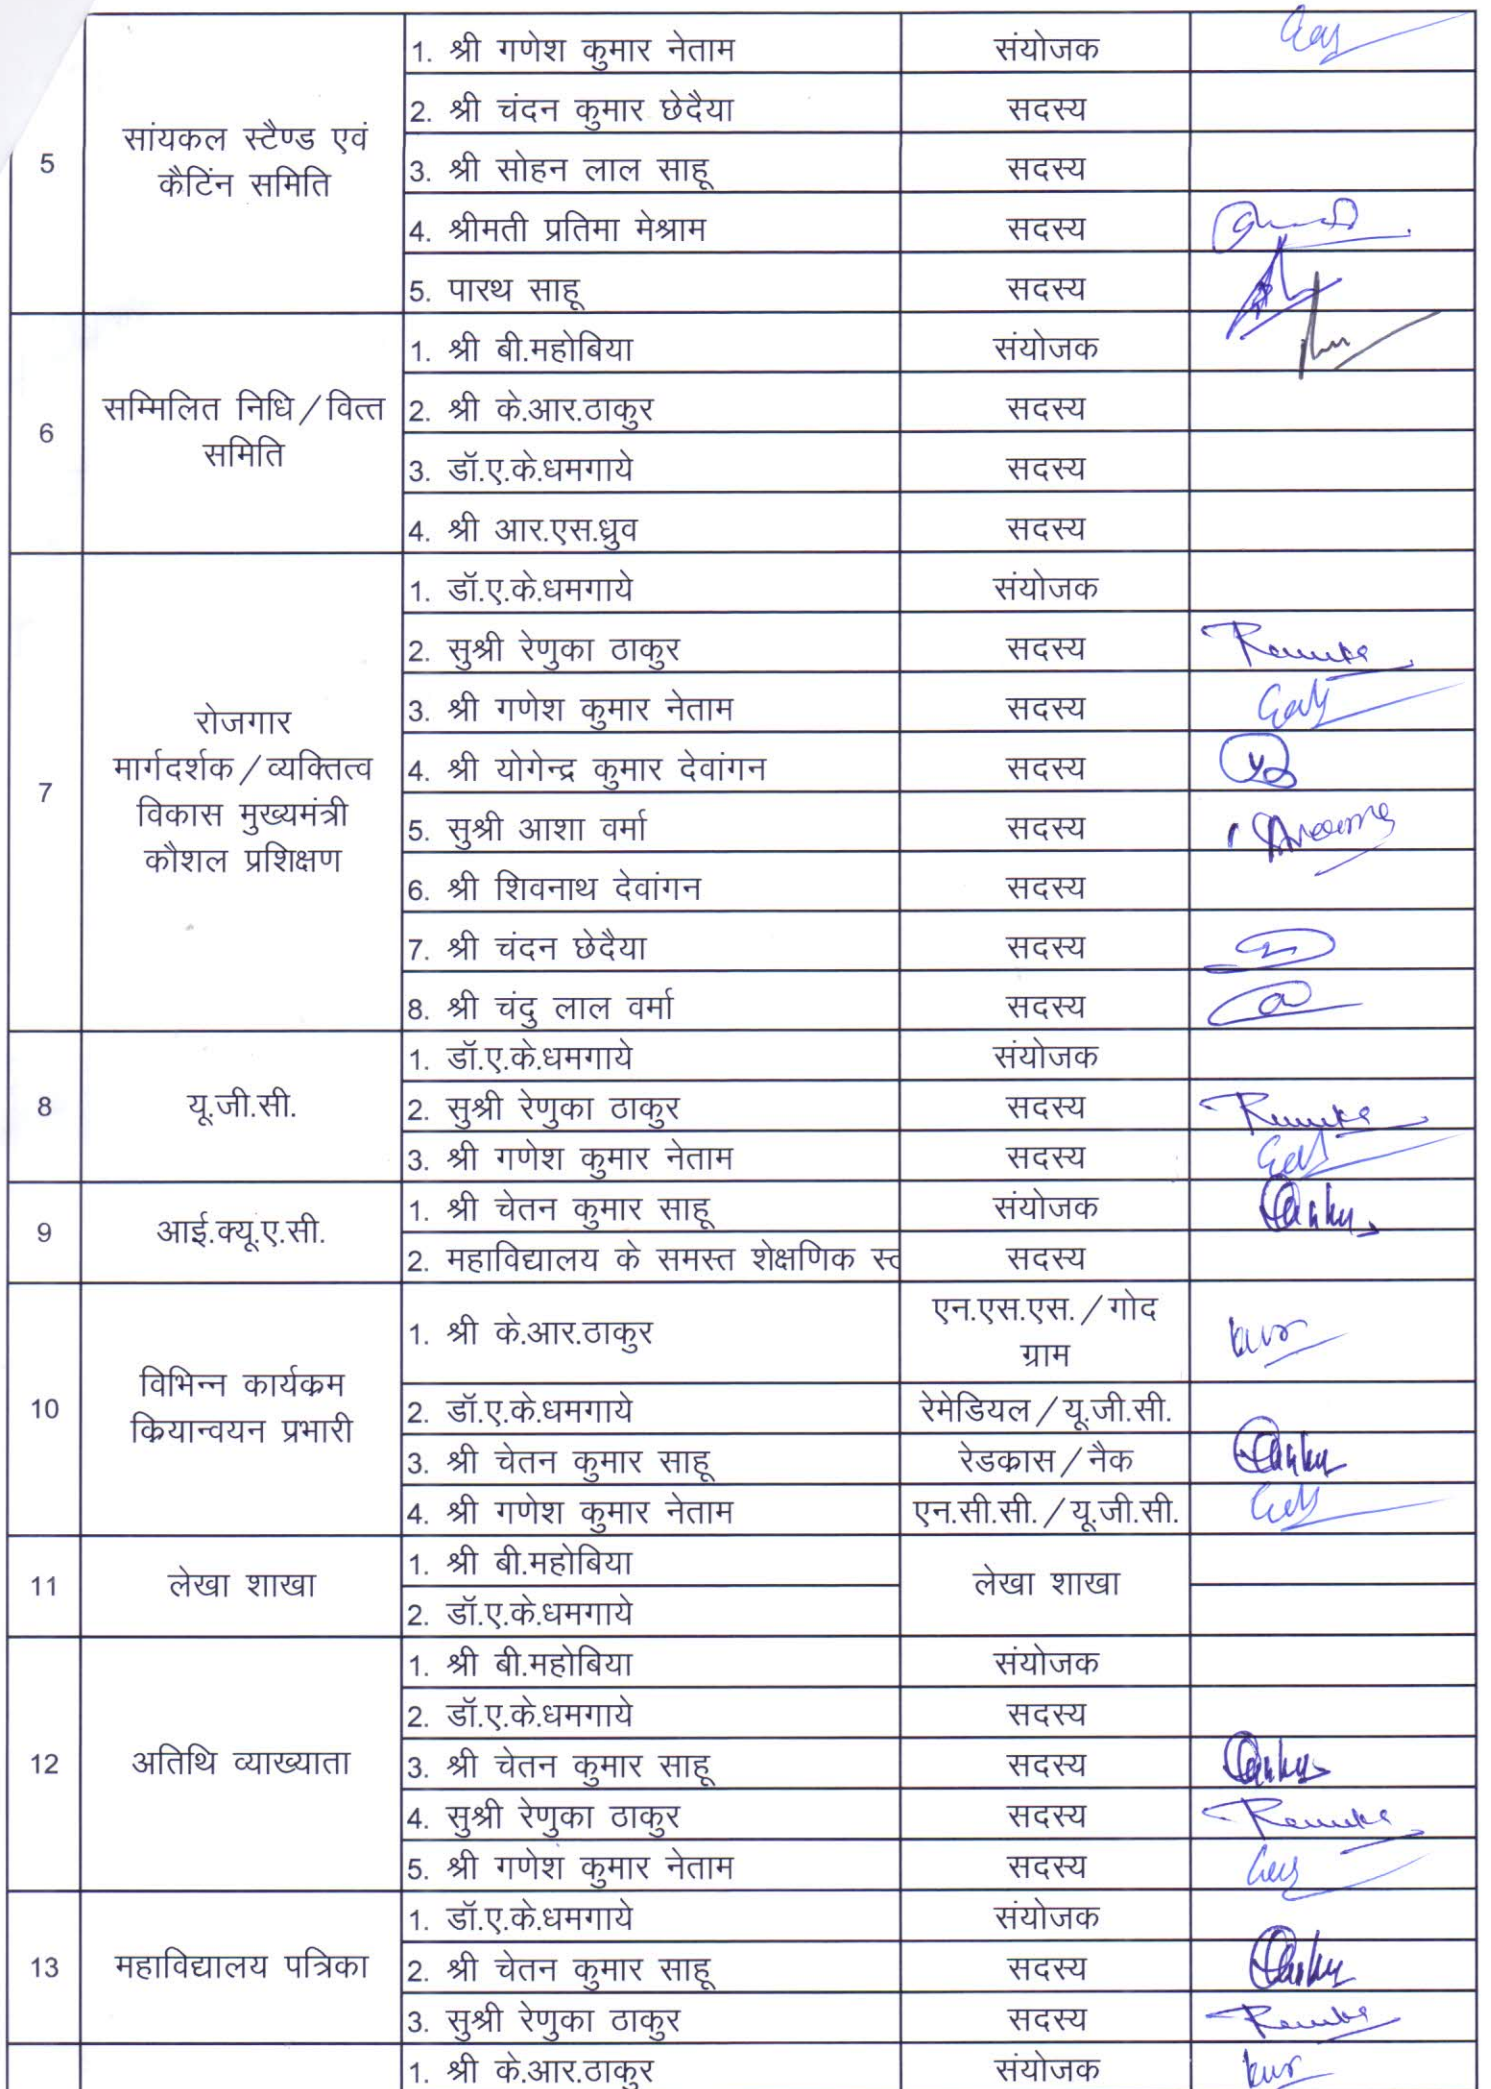 5
सांयकल स्टैण्ड एवं
कैटिंन समिति
1. श्री गणेश कुमार नेताम संयोजक
2. श्री चंदन कुमार छेदैया सदस्य
3. श्री सोहन लाल साहू सदस्य
4. श्रीमती प्रतिमा मेश्राम सदस्य
5. पारथ साहू सदस्य
6
सम्मिलित निधि/वित्त
समिति
1. श्री बी.महोबिया संयोजक
2. श्री के.आर.ठाकुर सदस्य
3. डॉ.ए.के.धमगाये सदस्य
4. श्री आर.एस.ध्रुव सदस्य
7
रोजगार
मार्गदर्शक/व्यक्तित्व
विकास मुख्यमंत्री
कौशल प्रशिक्षण
1. डॉ.ए.के.धमगाये संयोजक
2. सुश्री रेणुका ठाकुर सदस्य
3. श्री गणेश कुमार नेताम सदस्य
4. श्री योगेन्द्र कुमार देवांगन सदस्य
5. सुश्री आशा वर्मा सदस्य
6. श्री शिवनाथ देवांगन सदस्य
7. श्री चंदन छेदैया सदस्य
8. श्री चंदु लाल वर्मा सदस्य
8
यू.जी.सी.
1. डॉ.ए.के.धमगाये संयोजक
2. सुश्री रेणुका ठाकुर सदस्य
3. श्री गणेश कुमार नेताम सदस्य
9
आई.क्यू.ए.सी.
1. श्री चेतन कुमार साहू संयोजक
2. महाविद्यालय के समस्त शेक्षणिक सदस्य
10
विभिन्न कार्यक्रम
क्रियान्वयन प्रभारी
1. श्री के.आर.ठाकुर एन.एस.एस./गोद
ग्राम
2. डॉ.ए.के.धमगाये रेमेडियल/यू.जी.सी.
3. श्री चेतन कुमार साहू रेडक्रास/नैक
4. श्री गणेश कुमार नेताम एन.सी.सी./यू.जी.सी.
11
लेखा शाखा
1. श्री बी.महोबिया
2. डॉ.ए.के.धमगाये
लेखा शाखा
12
अतिथि व्याख्याता
1. श्री बी.महोबिया संयोजक
2. डॉ.ए.के.धमगाये सदस्य
3. श्री चेतन कुमार साहू सदस्य
4. सुश्री रेणुका ठाकुर सदस्य
5. श्री गणेश कुमार नेताम सदस्य
13
महाविद्यालय पत्रिका
1. डॉ.ए.के.धमगाये संयोजक
2. श्री चेतन कुमार साहू सदस्य
3. सुश्री रेणुका ठाकुर सदस्य
1. श्री के.आर.ठाकुर संयोजक